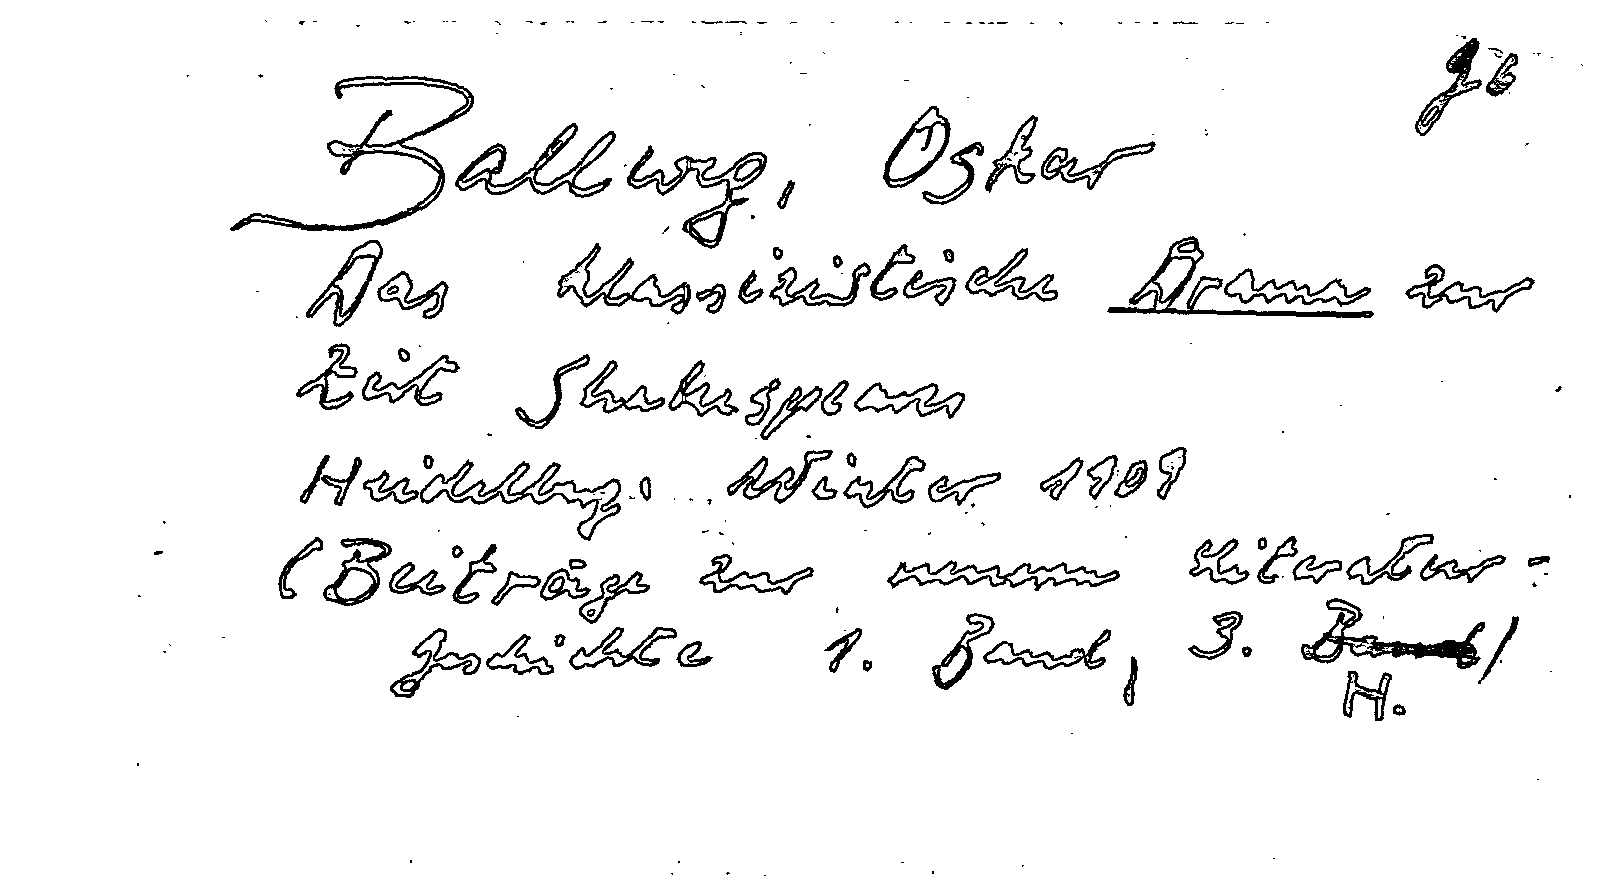 gb
Ballweg, Oskar
Das klassizistische Drama zur
Zeit Shakespeares
Heidelberg: Winter 1909
(Beiträge zur neueren Literatur-
geschichte 1. Band, 3. Band)
H.